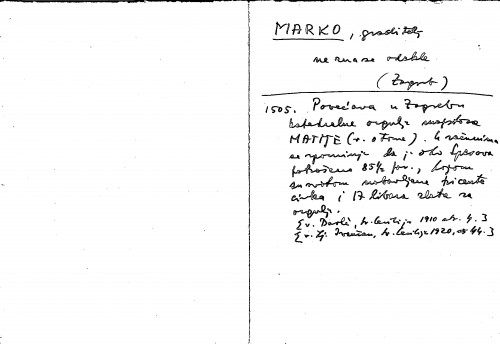 MARKO, graditelj
ne zna se odakle
(Zagreb)
1505. Povećava u Zagrebu
katedralne orgulje majstora
MATIJE (v. o tome). U računima
se spominje da je oko
potrošeno 85½ for.,
nabavljene
cinka i 17 libara zlata za
orgulje.
[v. Barlè, sv. Cecilija 1910 str. 4.]
[v. Lj. Ivančan, sv. Cecilija 1920, str 44.]